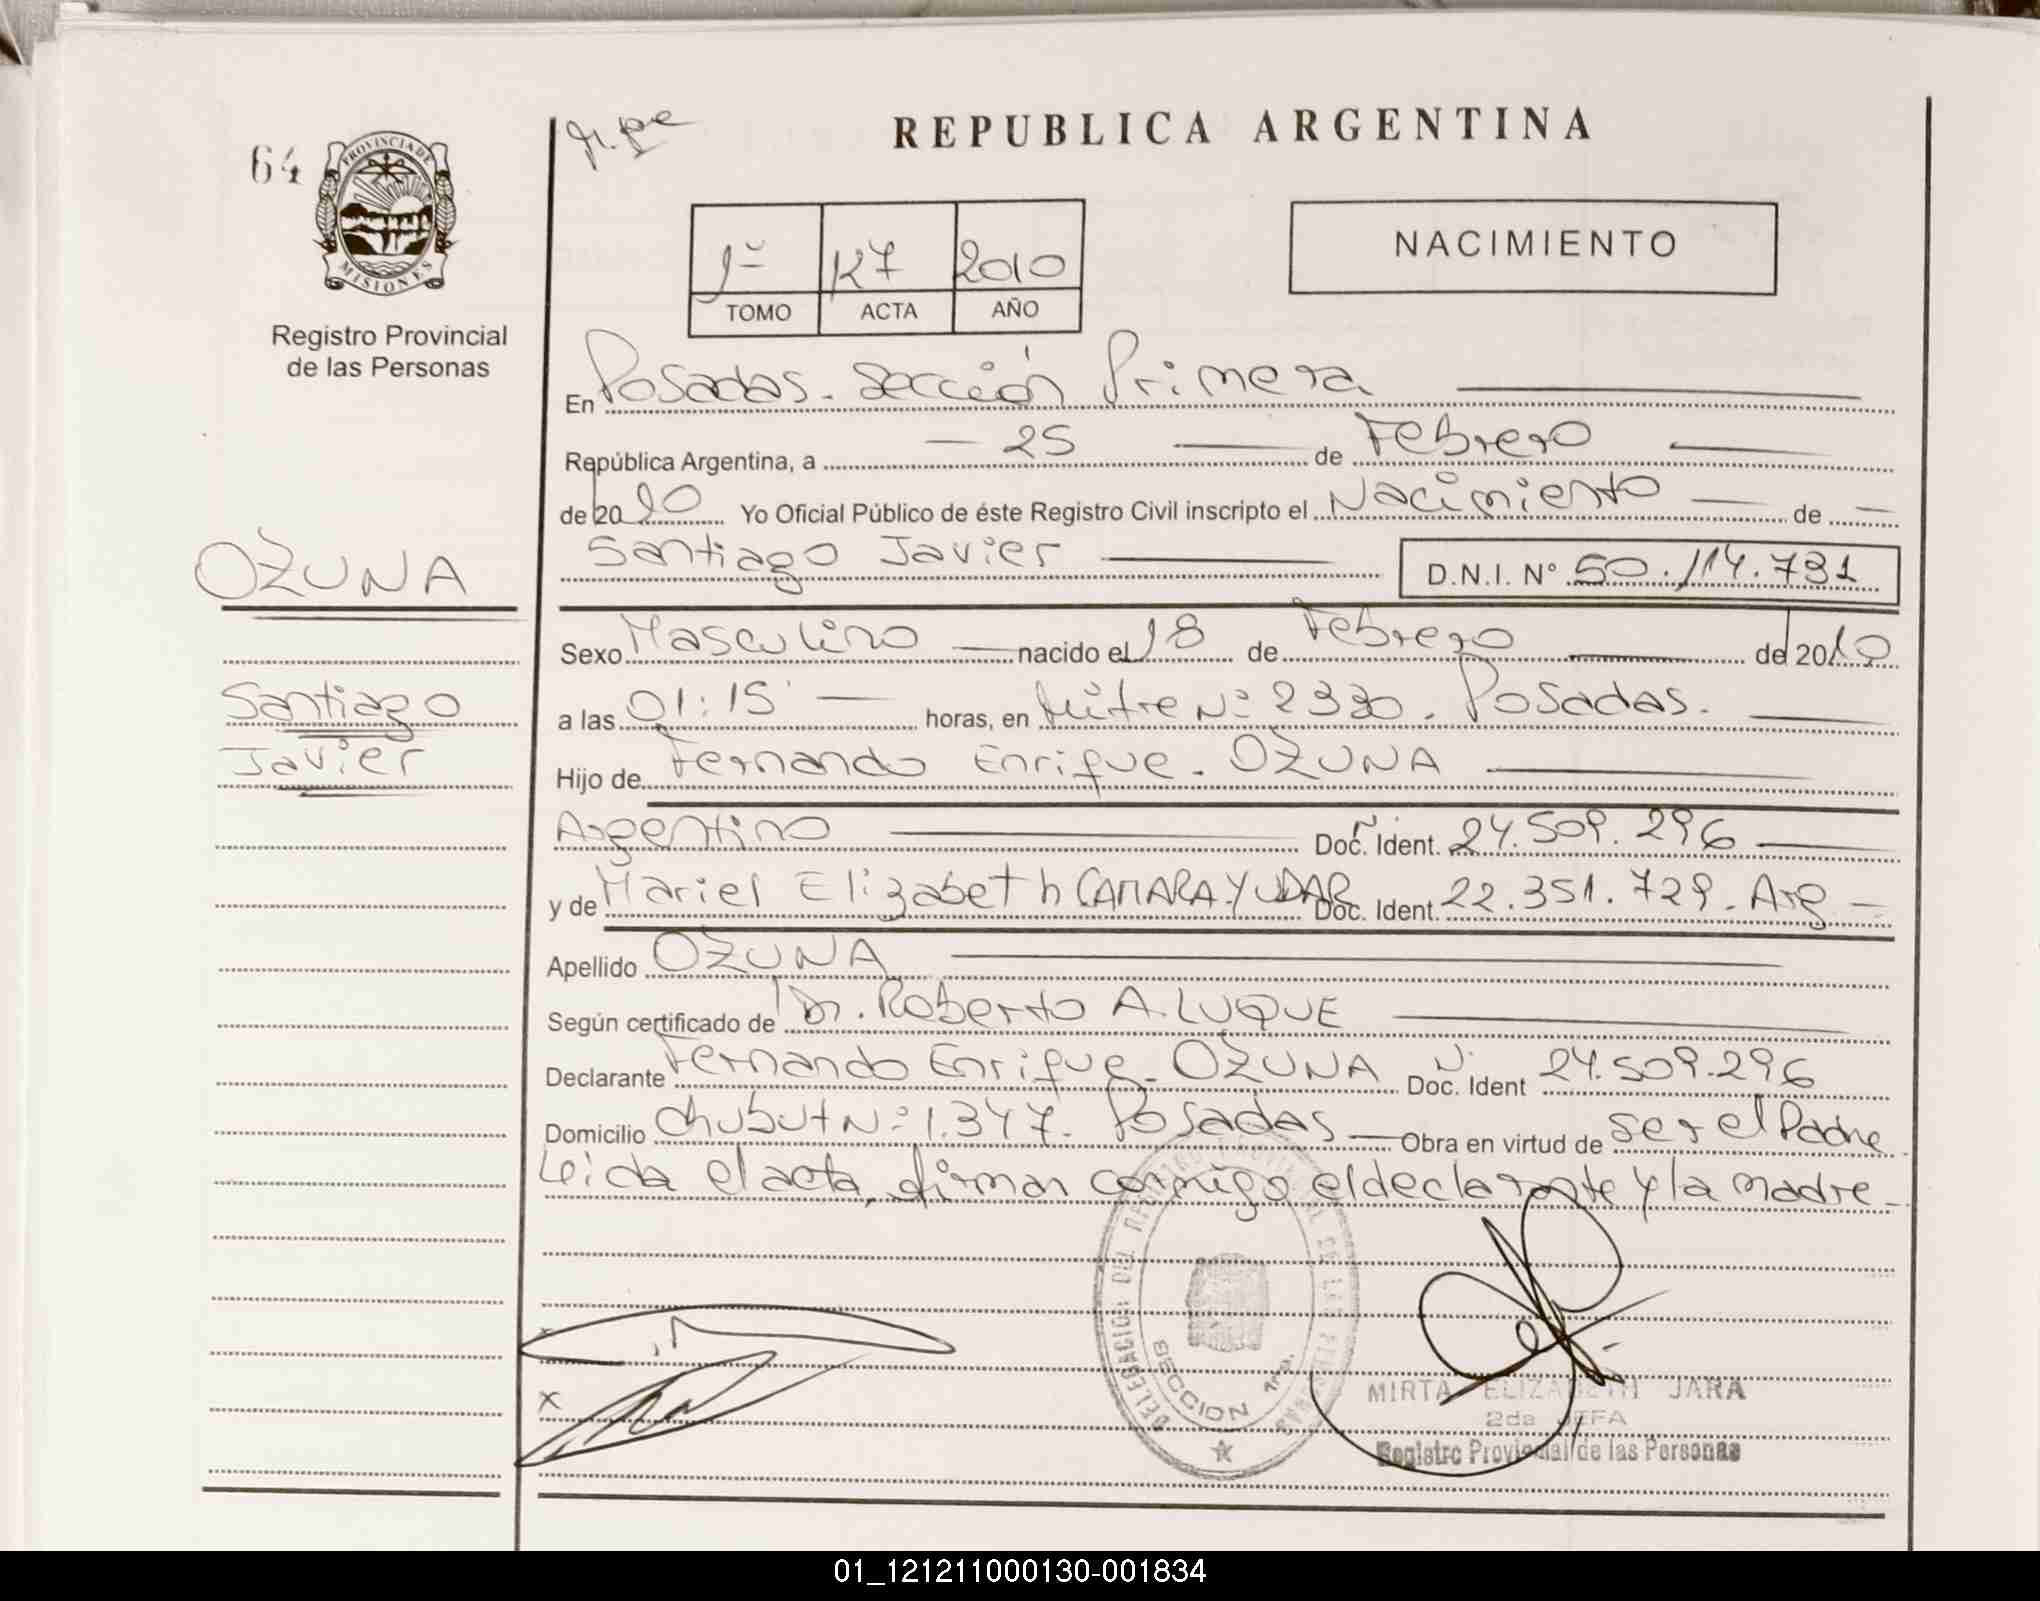 REPUBLICA ARGENTINA
64
PROVINCIA DE
MISIONES
Registro Provincial
de las Personas
1º 127 2010
TOMO ACTA AÑO
NACIMIENTO
En Posadas. Sección Primera
República Argentina, a 25 de Febrero
de 2010 Yo Oficial Público de éste Registro Civil inscripto el Nacimiento de
Santiago Javier D.N.I. Nº 50.114.731
OZUNA
Sexo Masculino nacido el 18 de Febrero de 2010
Santiago
a las 01:15 horas, en Mitre Nº 2330. Posadas.
Javier
Hijo de Fernando Enrique. OZUNA
Argentino Doc. Ident. Nº 24.509.296
y de Mariel Elizabeth CAMARA YUDAR Doc. Ident. 22.351.729. Arg
Apellido OZUNA
Según certificado de Dr. Roberto A. LUQUE
Declarante Fernando Enrique. OZUNA Doc. Ident Nº 24.509.296
Domicilio Chubut Nº 1.347. Posadas Obra en virtud de ser el Padre
Leida el acta, firman conmigo el declarante y la madre
DELEGACION DEL REGISTRO PROVINCIAL DE LAS PERSONAS
SECCION 1ra.
MIRTA ELIZABETH JARA
2da JEFA
Registro Provincial de las Personas
01_121211000130-001834